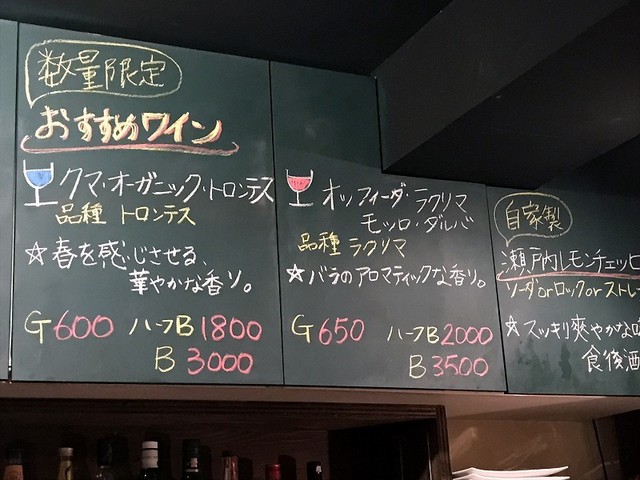 数量限定
おすすめワイン
クマ・オーガニック・トロンテス
品種 トロンテス
☆春を感じさせる、
華やかな香り。
G600 ハーフB1800
B 3000
オッフィーダ・ラクリマ
モッロ・ダルバ
品種 ラクリマ
★バラのアロマティックな香り。
G650 ハーフB2000
B3500
自家製
瀬戸内レモンチェッロ
ソーダorロックorストレー
★スッキリ爽やかな
食後酒